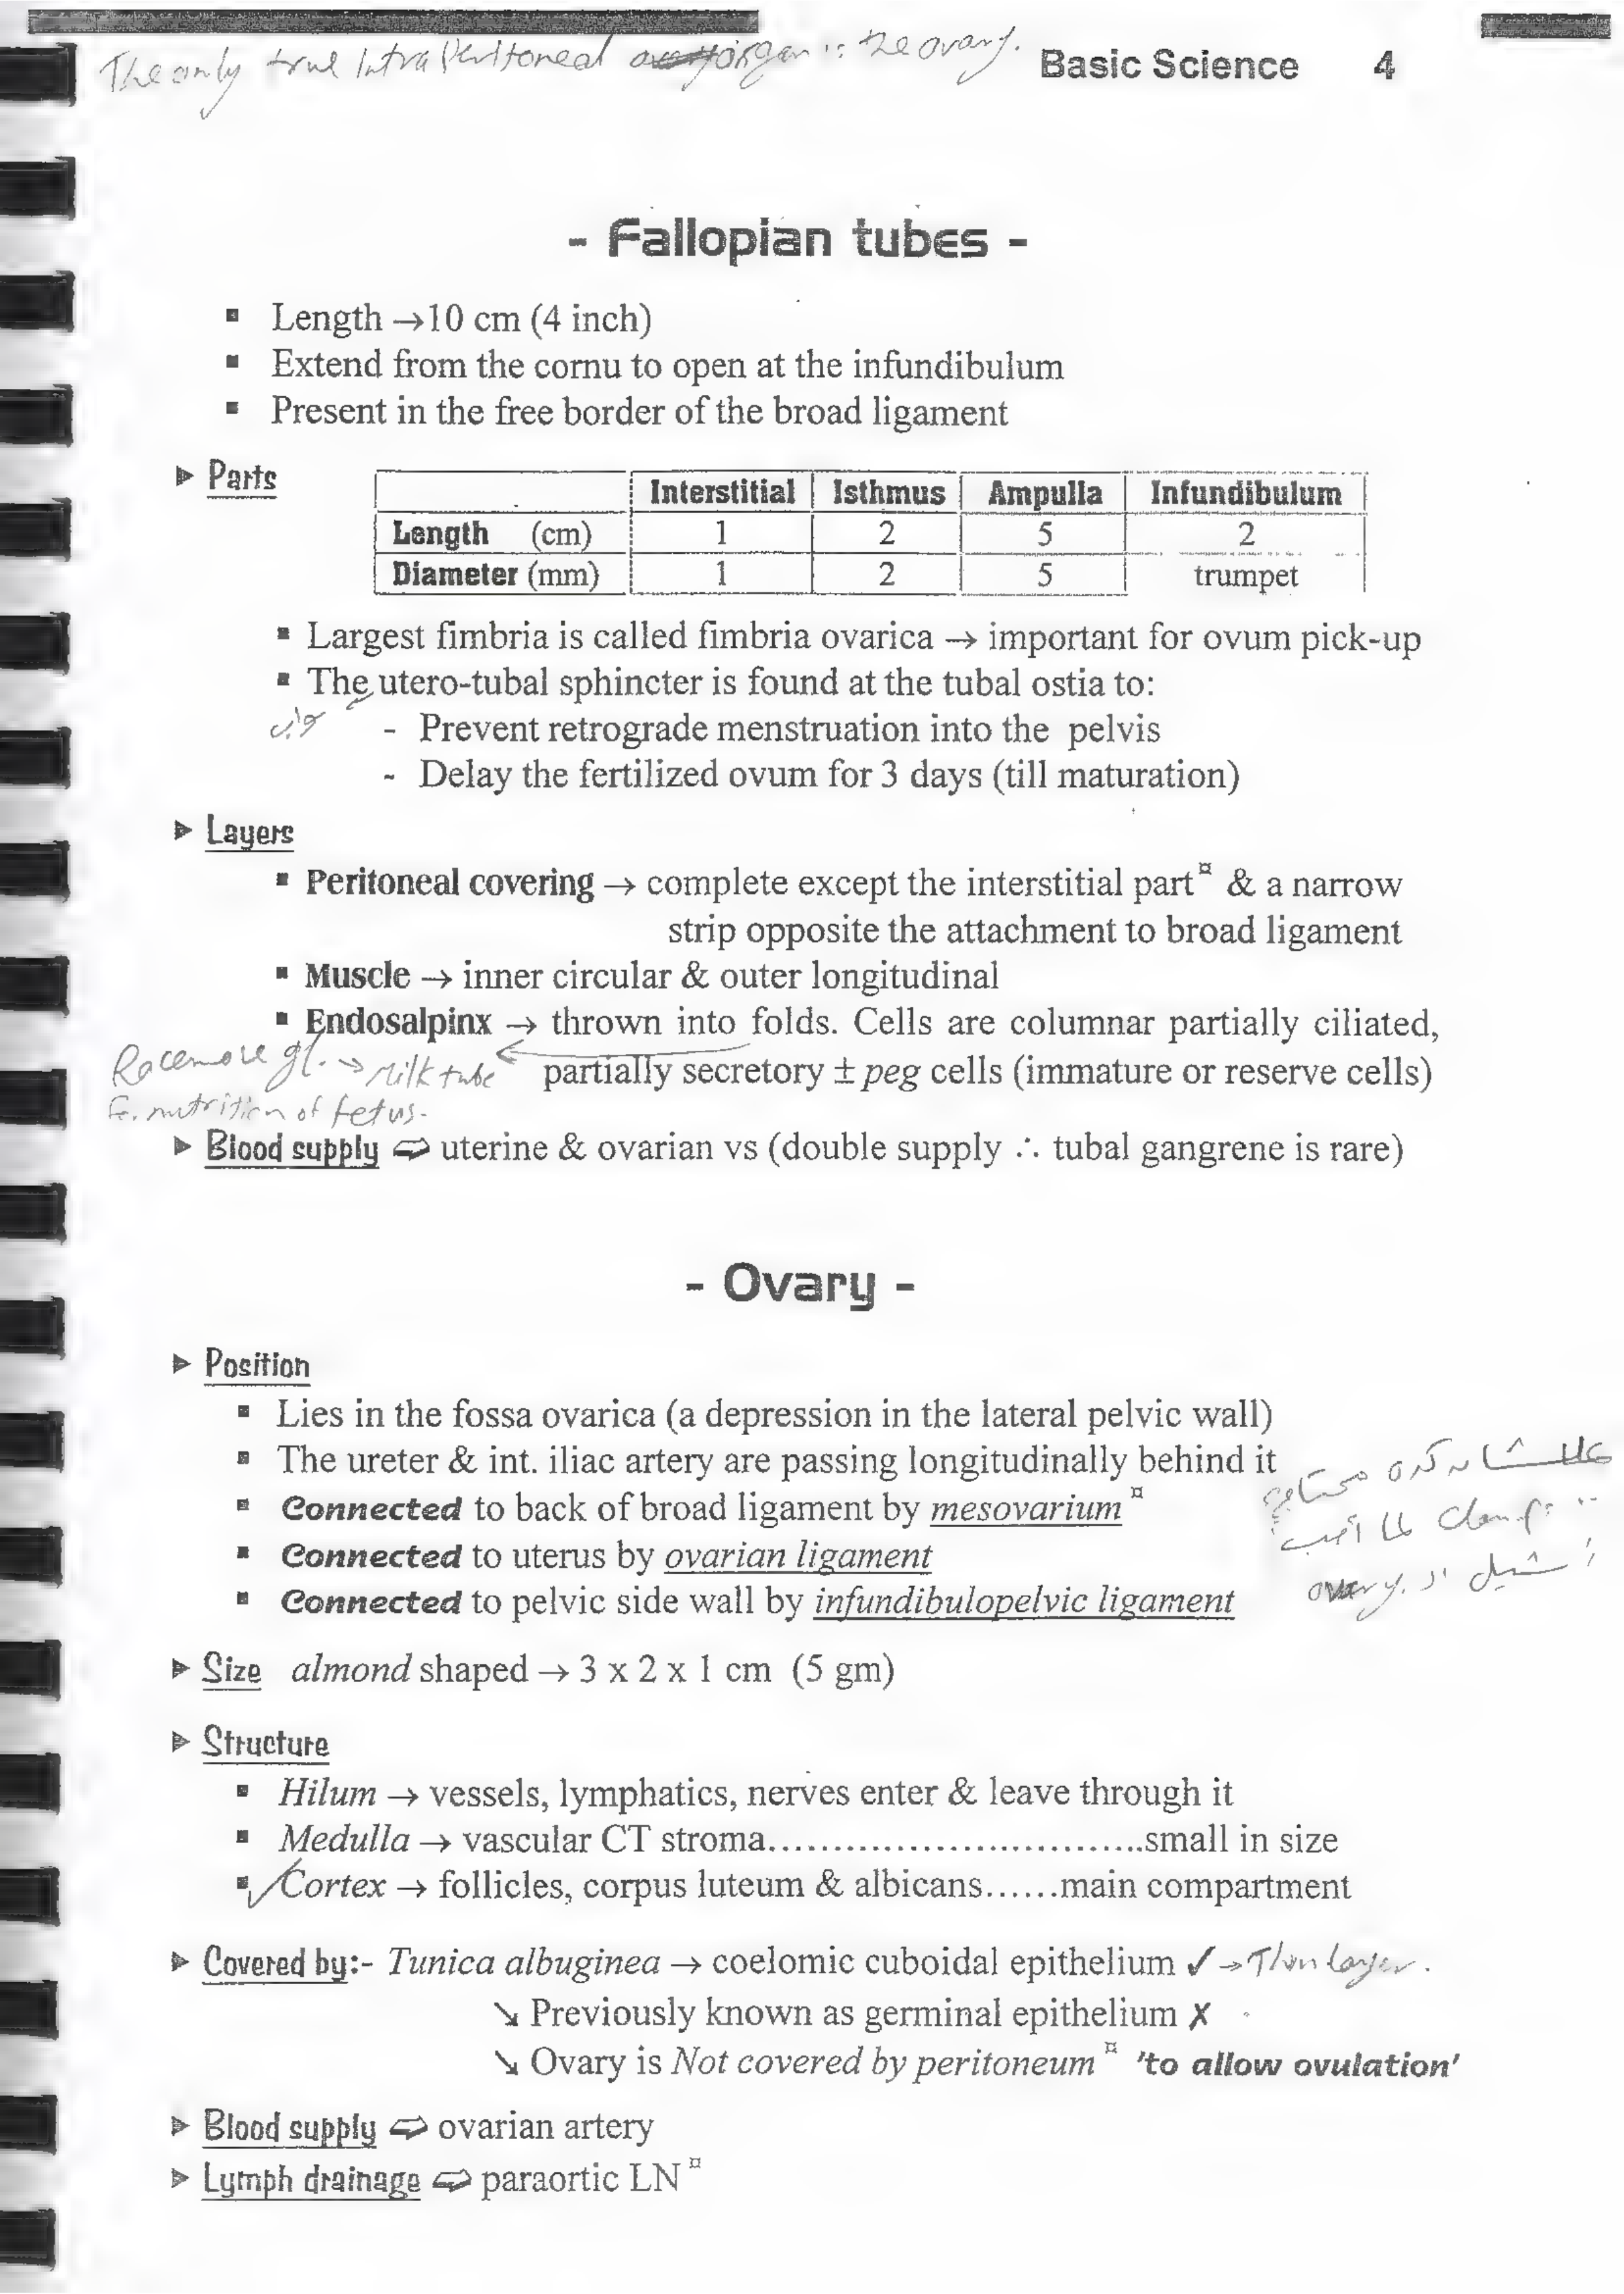 The only true IntraPeritoneal organ is the ovary.
Basic Science 4
- Fallopian tubes -
▪ Length →10 cm (4 inch)
▪ Extend from the cornu to open at the infundibulum
▪ Present in the free border of the broad ligament
▶ Parts
Interstitial Isthmus Ampulla Infundibulum
Length (cm) 1 2 5 2
Diameter (mm) 1 2 5 trumpet
▪ Largest fimbria is called fimbria ovarica → important for ovum pick-up
▪ The utero-tubal sphincter is found at the tubal ostia to:
- Prevent retrograde menstruation into the pelvis
- Delay the fertilized ovum for 3 days (till maturation)
▶ Layers
▪ Peritoneal covering → complete except the interstitial part¤ & a narrow
strip opposite the attachment to broad ligament
▪ Muscle → inner circular & outer longitudinal
▪ Endosalpinx → thrown into folds. Cells are columnar partially ciliated,
partially secretory ± peg cells (immature or reserve cells)
Racemose gl. → Milk tube
nutrition of fetus.
▶ Blood supply ⇨ uterine & ovarian vs (double supply ∴ tubal gangrene is rare)
- Ovary -
▶ Position
▪ Lies in the fossa ovarica (a depression in the lateral pelvic wall)
▪ The ureter & int. iliac artery are passing longitudinally behind it
▪ Connected to back of broad ligament by mesovarium¤
▪ Connected to uterus by ovarian ligament
▪ Connected to pelvic side wall by infundibulopelvic ligament
علشان كده محتاج
clamp لما أجب
أشيل ال ovary.
▶ Size almond shaped → 3 x 2 x 1 cm (5 gm)
▶ Structure
▪ Hilum → vessels, lymphatics, nerves enter & leave through it
▪ Medulla → vascular CT stroma............................small in size
▪ Cortex → follicles, corpus luteum & albicans......main compartment
▶ Covered by:- Tunica albuginea → coelomic cuboidal epithelium ✓ → Thin layer.
↘ Previously known as germinal epithelium ✗
↘ Ovary is Not covered by peritoneum¤ 'to allow ovulation'
▶ Blood supply ⇨ ovarian artery
▶ Lymph drainage ⇨ paraortic LN¤